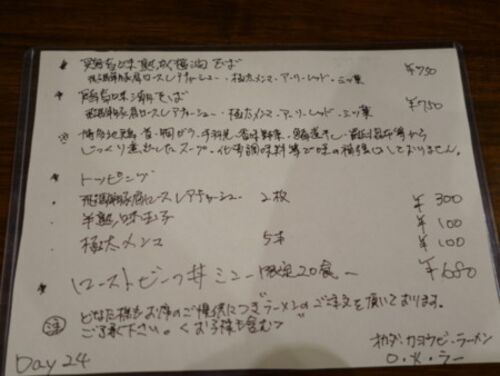 ★ 鶏旨味熟成醤油そば ¥750
飛騨豚肩ロースレアチャーシュー・極太メンマ・アーリーレッド・三ツ葉
★ 鶏旨味潮そば ¥750
飛騨豚肩ロースレアチャーシュー・極太メンマ・アーリーレッド・三ツ葉
じっくり煮出したスープ。化学調味料等で味の補強はしておりません。
・トッピング
肩ロースレアチャーシュー 2枚 ¥300
半熟味玉子 ¥100
極太メンマ 5本 ¥100
★ ローストビーフ丼ミニ 限定20食 ¥680
注 どなた様もお席のご提供につきラーメンのご注文を頂いております。
ご了承下さい。<お子様も含む>
Day 24
オカダ・カヨウビ・ラーメン
O.火.ラー